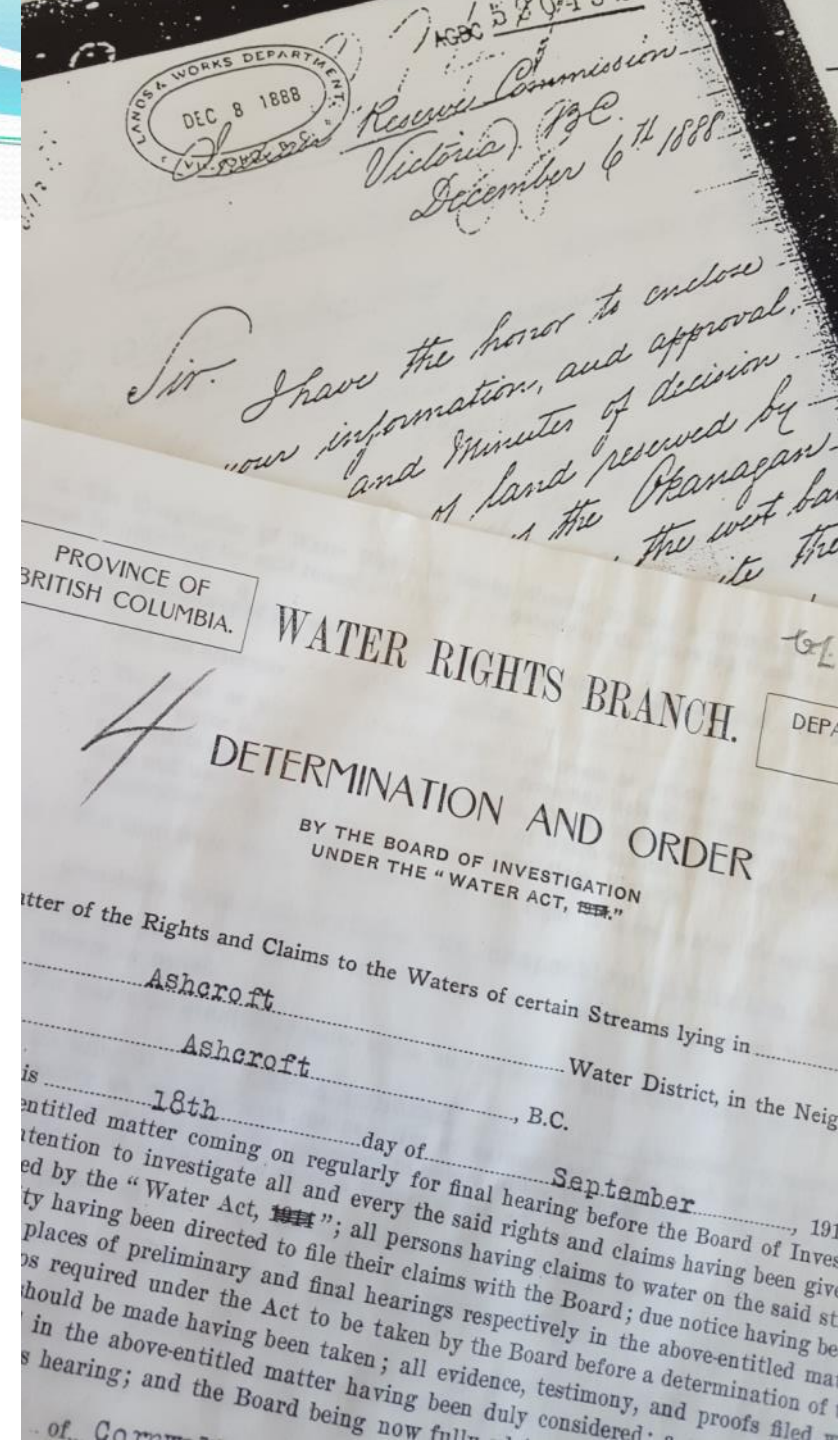 AGBC
LANDS & WORKS DEPARTMENT
DEC 8 1888
Reserve Commission
Victoria, B.C.
December 6TH 1888
Sir.
I have the honor to enclose
your information, and approval,
and Minutes of decision
of land reserved by
the Okanagan
the west ba
ite the
PROVINCE OF
BRITISH COLUMBIA.
WATER RIGHTS BRANCH.
DEPA
4
DETERMINATION AND ORDER
BY THE BOARD OF INVESTIGATION
UNDER THE "WATER ACT, 1914."
atter of the Rights and Claims to the Waters of certain Streams lying in
Ashcroft
Water District, in the Neig
Ashcroft, B.C.
is 18th day of September, 191
entitled matter coming on regularly for final hearing before the Board of Inves
ntention to investigate all and every the said rights and claims having been give
ed by the "Water Act, 1914"; all persons having claims to water on the said st
ty having been directed to file their claims with the Board; due notice having be
places of preliminary and final hearings respectively in the above-entitled mat
ps required under the Act to be taken by the Board before a determination of
should be made having been taken; all evidence, testimony, and proofs filed
in the above-entitled matter having been duly considered;
s hearing; and the Board being now fully
of